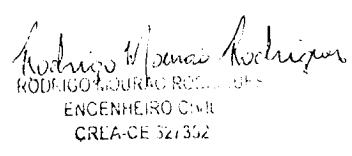 Rodrigo Mourão Rodrigues
RODRIGO MOURÃO RODRIGUES
ENGENHEIRO CIVIL
CREA-CE